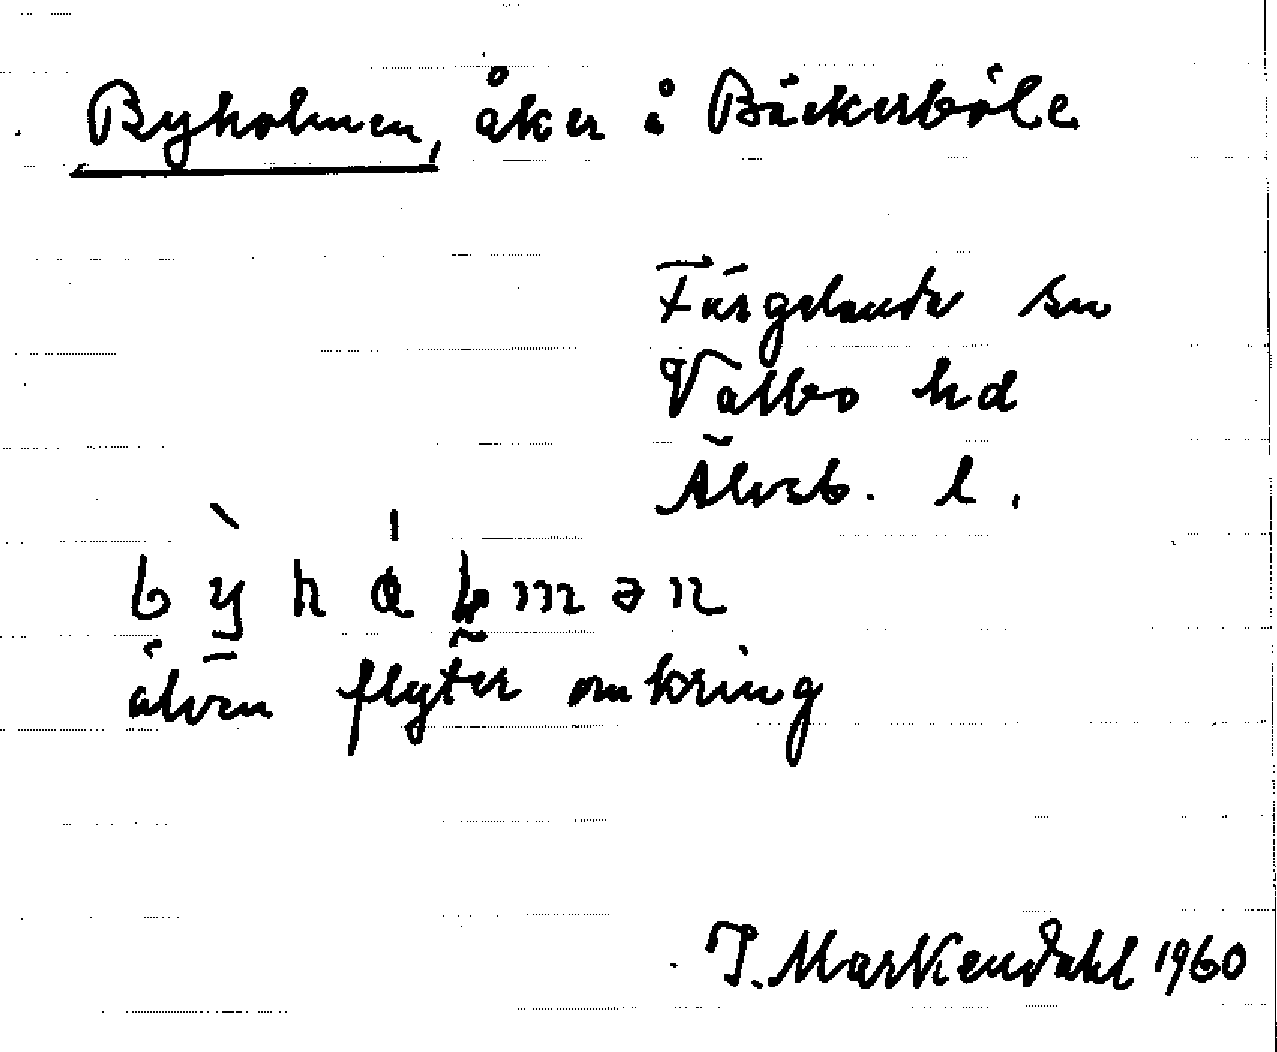 Byholmen, åker å Bäckerböle
Färgelanda sn
Valbo hd
Älvsb. l.
älven flyter omkring
I. Markendahl 1960